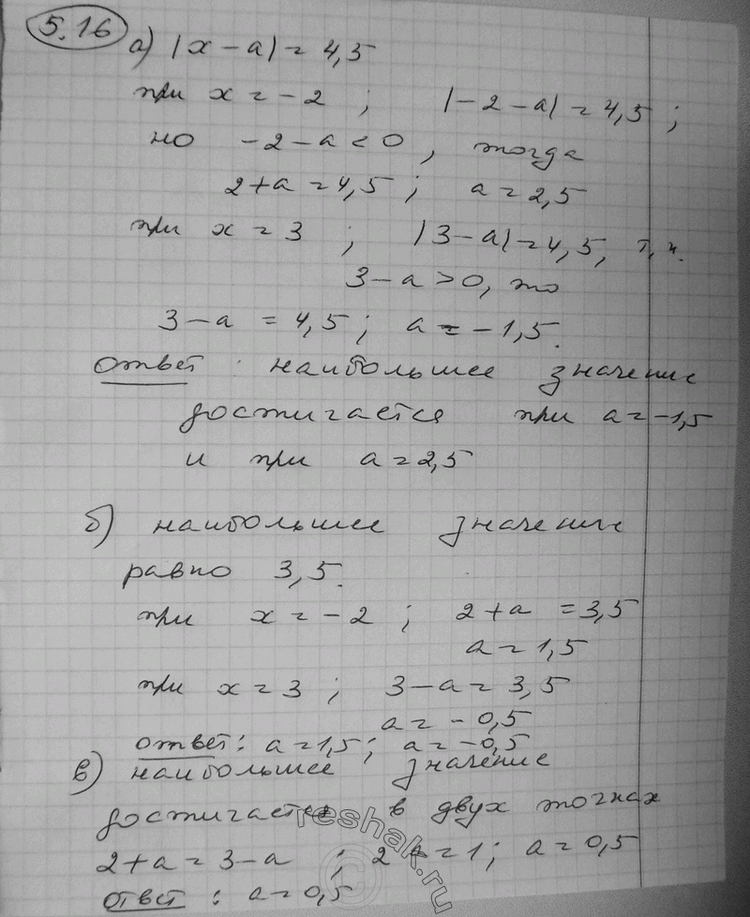 5.16
а) |x-a| = 4,5
при x = -2 ; |-2-a| = 4,5 ;
но -2-a < 0 , тогда
2+a = 4,5 ; a = 2,5
при x = 3 ; |3-a| = 4,5, т.к.
3-a > 0, то
3-a = 4,5 ; a = -1,5.
ответ : наибольшее значение
достигается при a = -1,5
и при a = 2,5
б) наибольшее значение
равно 3,5.
при x = -2 ; 2+a = 3,5
a = 1,5
при x = 3 ; 3-a = 3,5
a = -0,5
ответ : a = 1,5 ; a = -0,5
в) наибольшее значение
достигается в двух точках
2+a = 3-a ; 2a = 1 ; a = 0,5
ответ : a = 0,5
reshak.ru